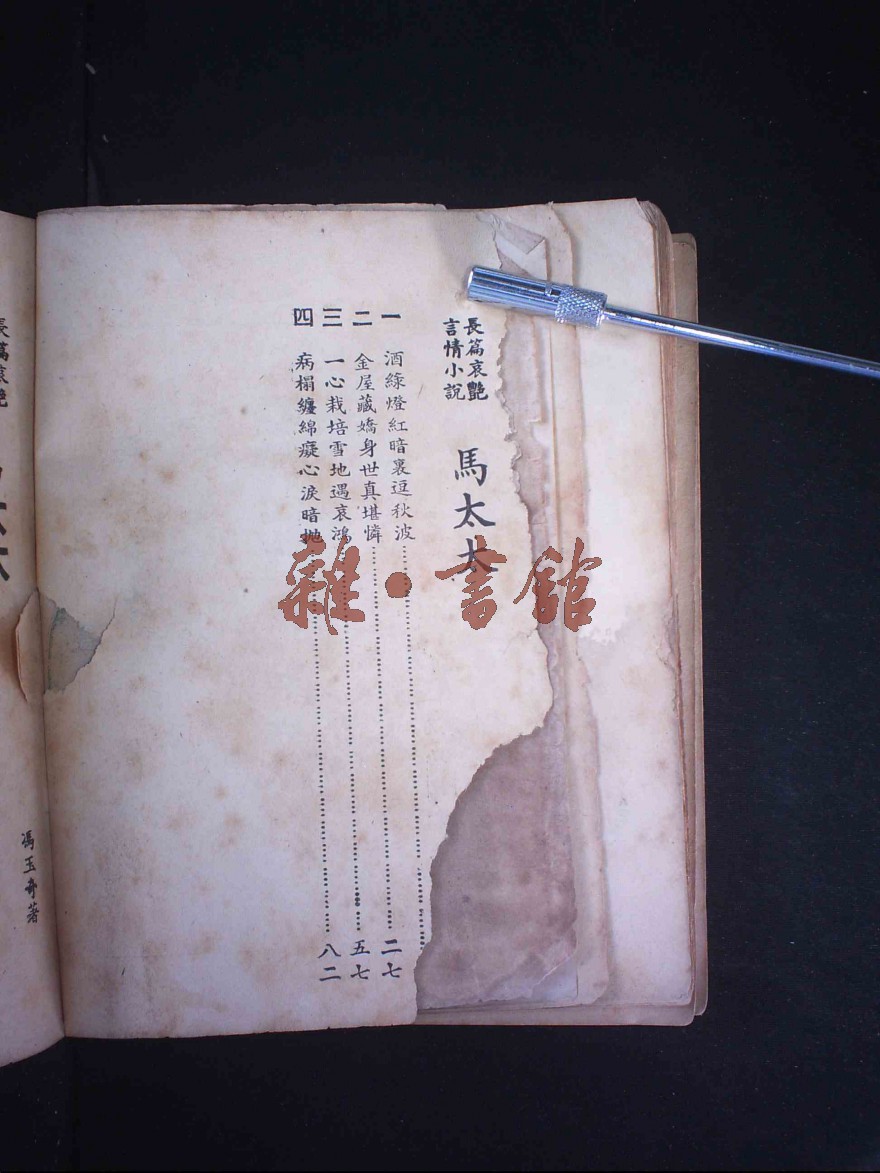 長篇哀艷
言情小說
馬太太
一 酒綠燈紅暗裏逗秋波……
二 金屋藏嬌身世真堪憐……二七
三 一心栽培雪地遇哀鴻……五七
四 病榻纏綿癡心淚暗拋……八二
長篇哀艷
太太
馮玉奇著
雜·書館